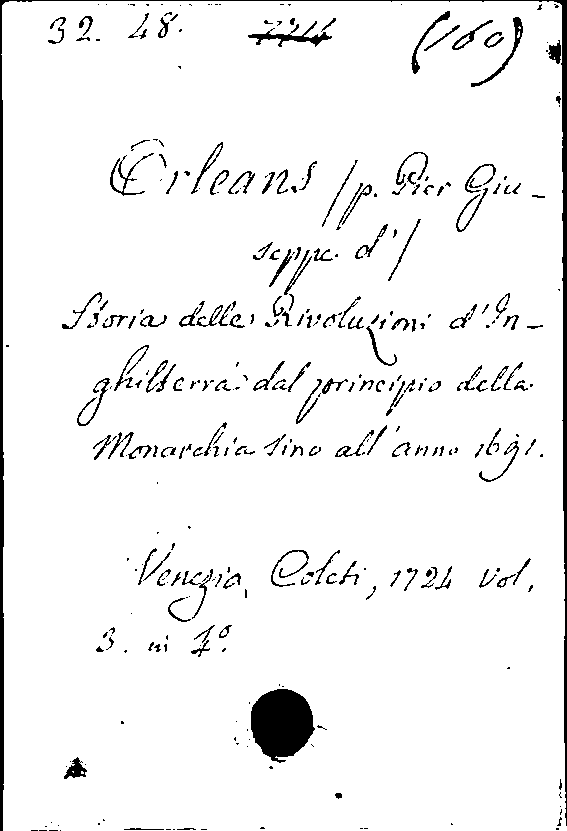 32. 48. 7714 (160)
Orleans /p. Pier Giu-
seppe d'/
Storia delle Rivoluzioni d'In-
ghilterra dal principio della
Monarchia sino all'anno 1691.
Venezia, Coleti, 1724 vol.
3. in 4º.